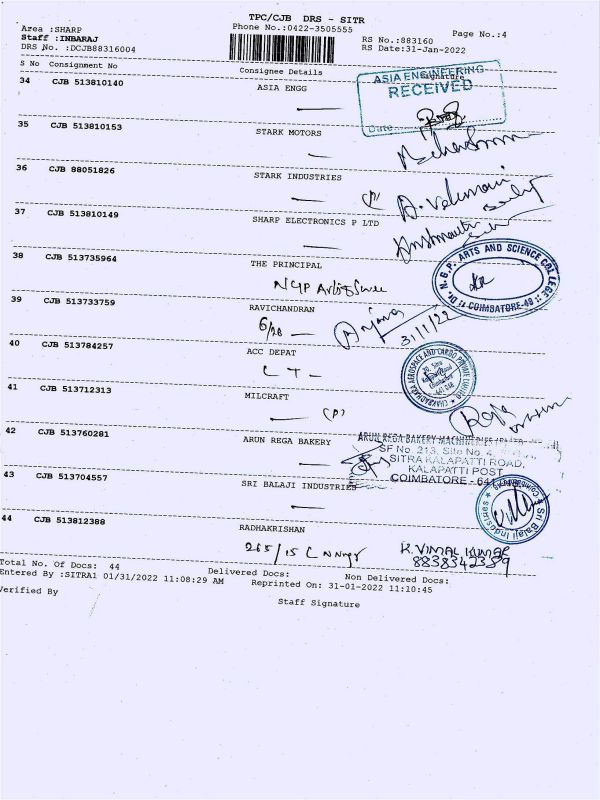 TPC/CJB DRS - SITR
Area :SHARP
Phone No.:0422-3505555
Staff :INBARAJ
RS No.:883160
Page No.:4
DRS No. :DCJB88316004
RS Date:31-Jan-2022
S No Consignment No Consignee Details Signature
34 CJB 513810140 ASIA ENGG
ASIA ENGINEERING
RECEIVED
Date
35 CJB 513810153 STARK MOTORS
36 CJB 88051826 STARK INDUSTRIES
37 CJB 513810149 SHARP ELECTRONICS P LTD
38 CJB 513735964 THE PRINCIPAL
Dr. N.G.P. ARTS AND SCIENCE COLLEGE
COIMBATORE-48
39 CJB 513733759 RAVICHANDRAN
31/1/22
40 CJB 513784257 ACC DEPAT
L T -
41 CJB 513712313 MILCRAFT
(P)
42 CJB 513760281 ARUN REGA BAKERY
ARUN REGA BAKERY MACHINERIES
SF No. 213, Site No. 4,
SITRA KALAPATTI ROAD,
KALAPATTI POST
COIMBATORE - 641
43 CJB 513704557 SRI BALAJI INDUSTRIES
Sri Balaji Industries
COIMBATORE
44 CJB 513812388 RADHAKRISHAN
265/15
K. VIMAL KUMAR
8838342359
Total No. Of Docs: 44 Delivered Docs: Non Delivered Docs:
Entered By :SITRA1 01/31/2022 11:08:29 AM Reprinted On: 31-01-2022 11:10:45
Verified By Staff Signature